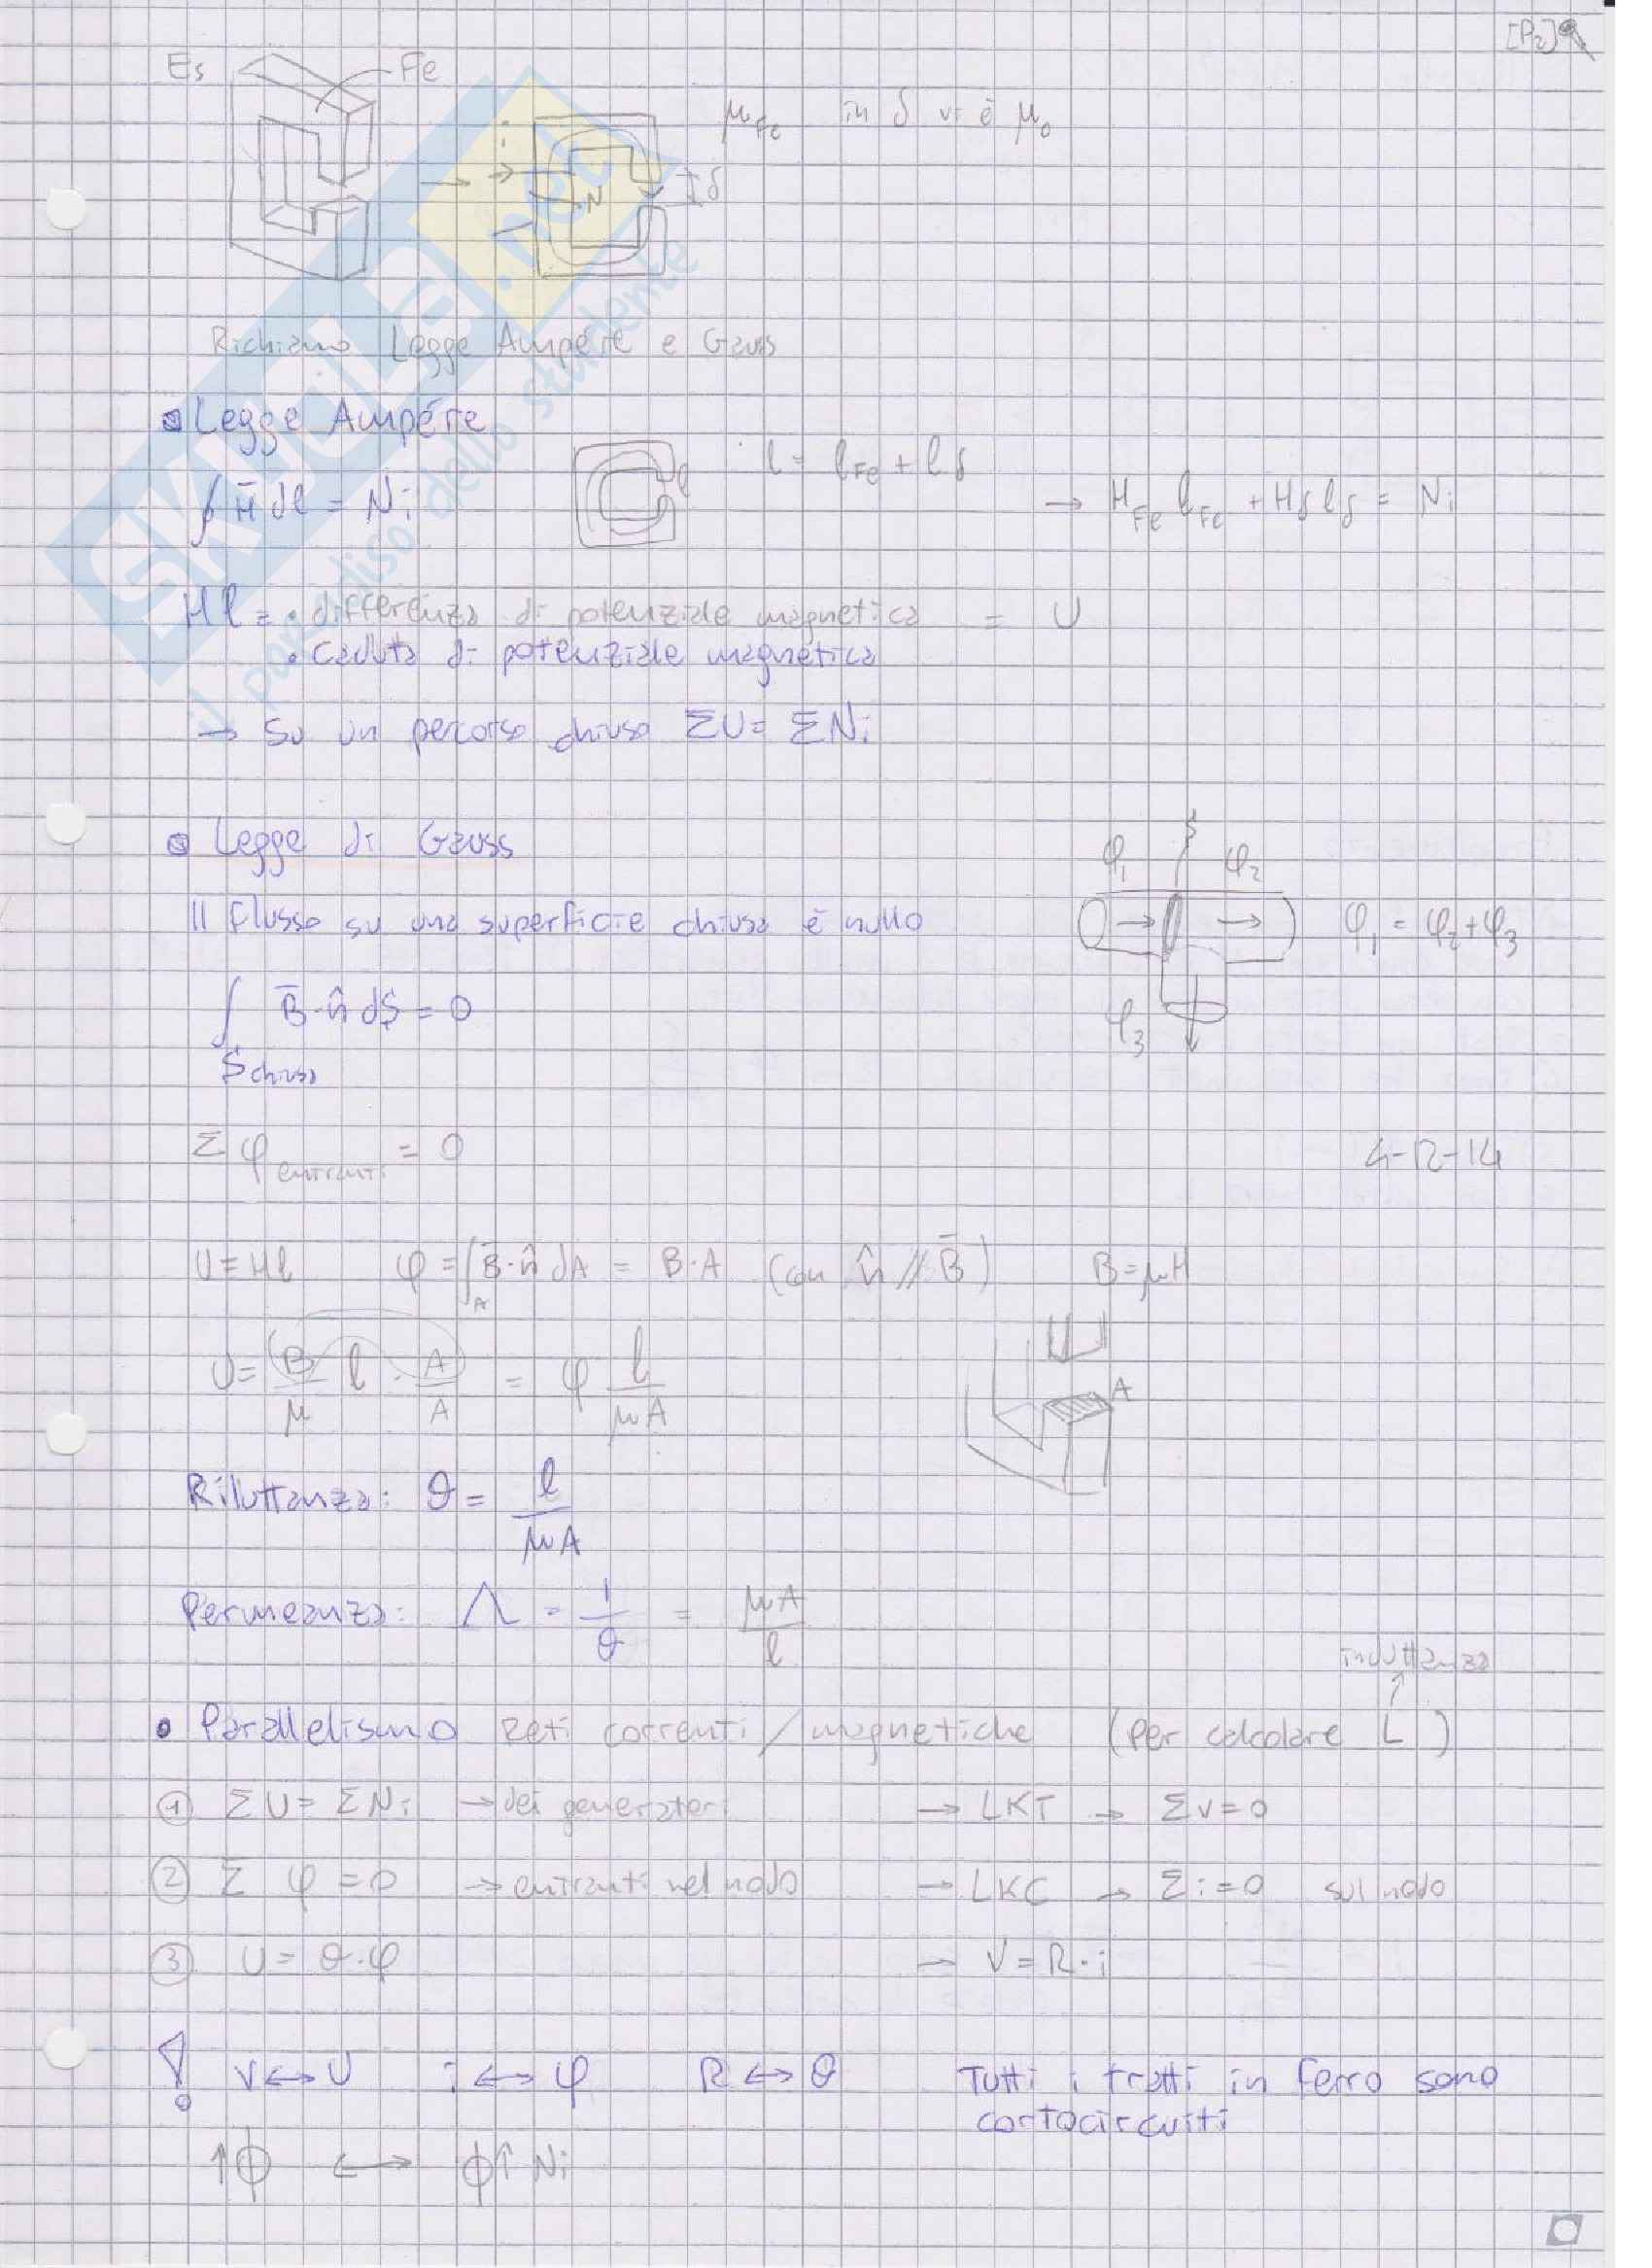 [P2]
Es Fe
μFe in δ vi è μ0
i
N δ
Richiamo Legge Ampére e Gauss
Legge Ampére
∮ H̄ dl = Ni l = lFe + lδ → HFe lFe + Hδ lδ = Ni
Hl = • differenza di potenziale magnetica = U
• caduta di potenziale magnetica
→ Su un percorso chiuso ΣU = ΣNi
Legge di Gauss
φ1 φ2
Il flusso su una superficie chiusa è nullo φ1 = φ2 + φ3
∫ B̄·n̂ dS = 0
φ3
S chiusa
Σ φ entranti = 0 4-12-14
U = Hl φ = ∫A B̄·n̂ dA = B·A (con n̂ // B̄) B = μH
U = B/μ l · A/A = φ l/μA
A
Riluttanza: θ = l/μA
Permeanza: Λ = 1/θ = μA/l
induttanza
• Parallelismo reti correnti/magnetiche (per calcolare L)
① ΣU = ΣNi → dei generatori → LKT → Σv=0
② Σ φ = 0 → entranti nel nodo → LKC → Σi=0 sul nodo
③ U = θ·φ → V = R·i
! V ↔ U i ↔ φ R ↔ θ Tutti i tratti in ferro sono
cortocircuiti
↑ ↔ ↑ Ni
SKUOLA.net
il paradiso dello studente